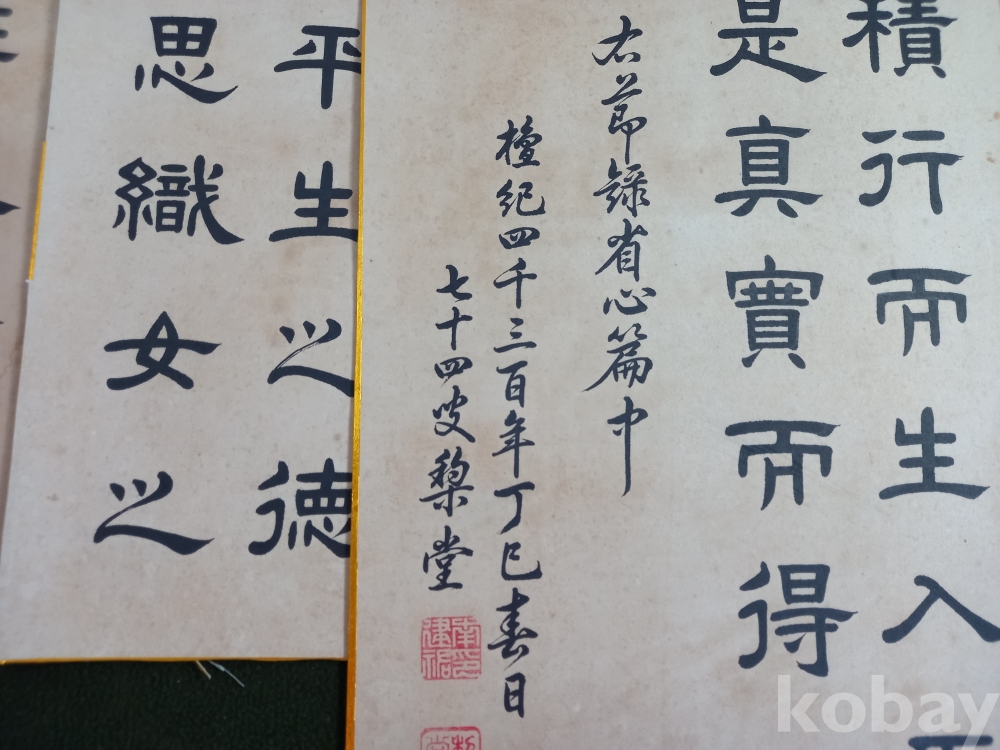 積行而生入
是真實而得
右節錄省心篇中
檀紀四千三百年丁巳春日
七十四叟黎堂
南
建祐
平生之德
思織女之
kobay